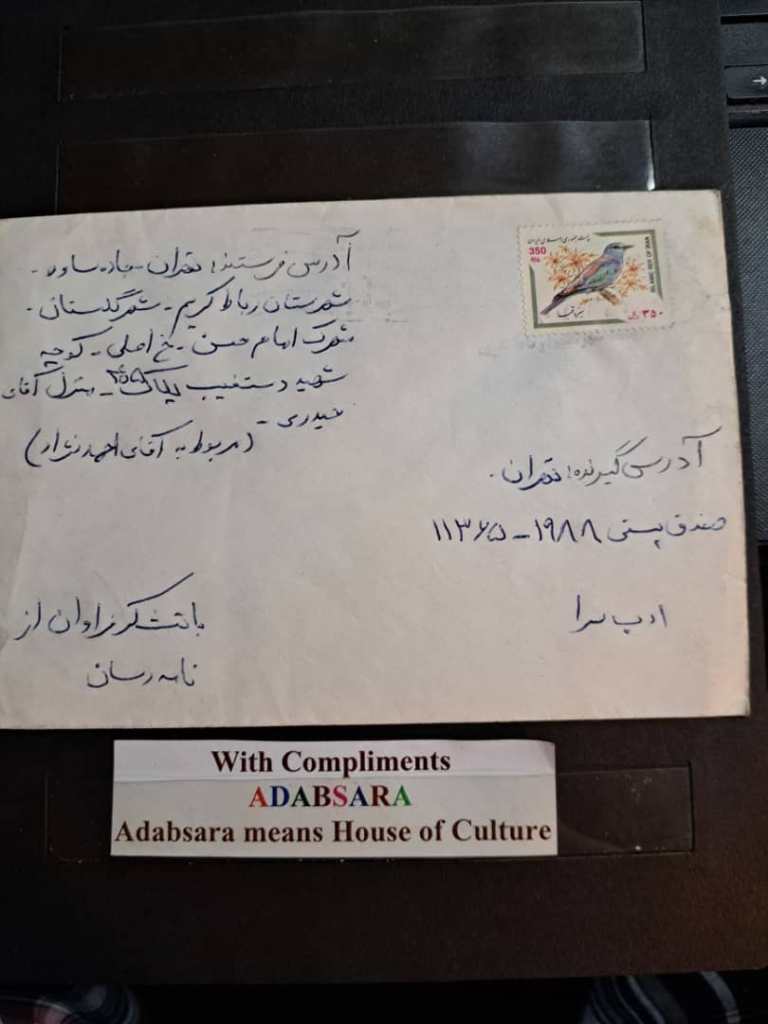 آدرس فرستنده: تهران - جاده ساوه -
شهرستان رباط کریم - شهر گلستان -
شهرک امام حسن - خ اصلی - کوچه
شهید دستغیب پلاک - منزل آقای
حیدری -
(مربوط به آقای احمدنژاد)
پست جمهوری اسلامی ایران
350
RIs
ISLAMIC REP. OF IRAN
سبزقبا
۳۵۰ ریال
آدرس گیرنده: تهران.
صندق پستی ۱۹۸۸ - ۱۱۳۶۵
ادب سرا
با تشکر فراوان از
نامه رسان
With Compliments
ADABSARA
Adabsara means House of Culture